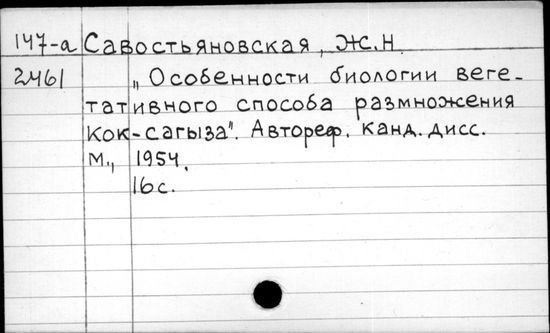 147-а Савостьяновская, Ж.Н.
2461 „Особенности биологии веге-
тативного способа размножения
кок-сагыза". Автореф. канд. дисс.
М., 1954.
16с.